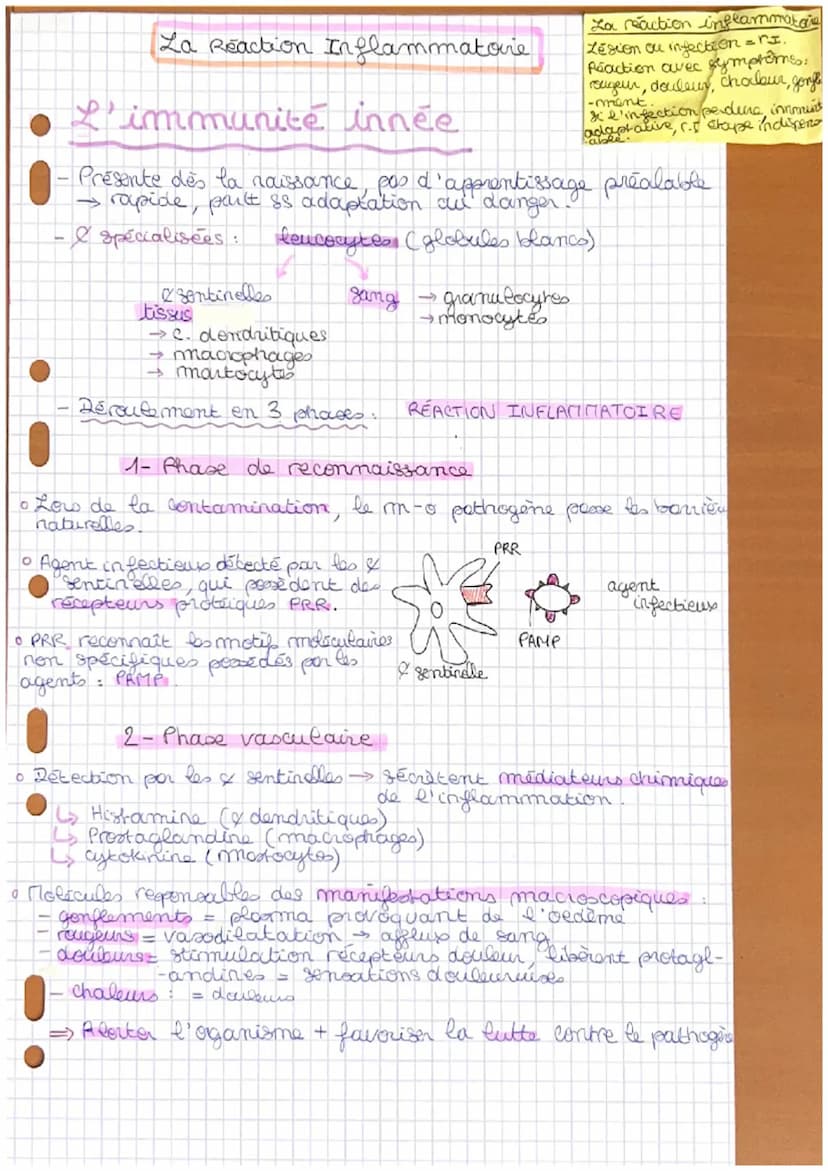 La Réaction Inflammatoire
La réaction inflammatoire
Lésion ou infection = r.I.
Réaction avec symptômes:
rougeur, douleur, chaleur, gonfle
-ment.
Si l'infection perdure, immunité
adaptative, r.I étape indispens
able.
L'immunité innée
- Présente dès la naissance, pas d'apprentissage préalable
→ rapide, part ss adaptation au danger.
- ¢ spécialisées : leucocytes (globules blancs)
¢ sentinelles
tissus
→ c. dendritiques
→ macrophages
→ mastocytes
sang → granulocytes
→ monocytes
- Déroulement en 3 phases : RÉACTION INFLAMMATOIRE
1- Phase de reconnaissance
o Lors de la contamination, le m-o pathogène passe les barrièr
naturelles.
o Agent infectieux détecté par les ¢
sentinelles, qui possèdent des
récepteurs protéiques PRR.
o PRR reconnaît les motifs moléculaires
non spécifiques possédés par les
agents : PAMP.
PRR
PAMP
agent
infectieux
¢ sentinelle
2- Phase vasculaire
o Détection par les ¢ sentinelles → sécrètent médiateurs chimiques
de l'inflammation.
↳ Histamine (¢ dendritiques)
↳ Prostaglandine (macrophages)
↳ cytokinine (mastocytes)
o Molécules responsables des manifestations macroscopiques :
- gonflements = plasma provoquant de l'oedème
- rougeurs = vasodilatation → afflux de sang
- douleurs = stimulation récepteurs douleur, libèrent protagl-
-andines = sensations douleureuses
- chaleurs : = douleurs
⇒ Alerter l'oganisme + favoriser la lutte contre le pathogèn